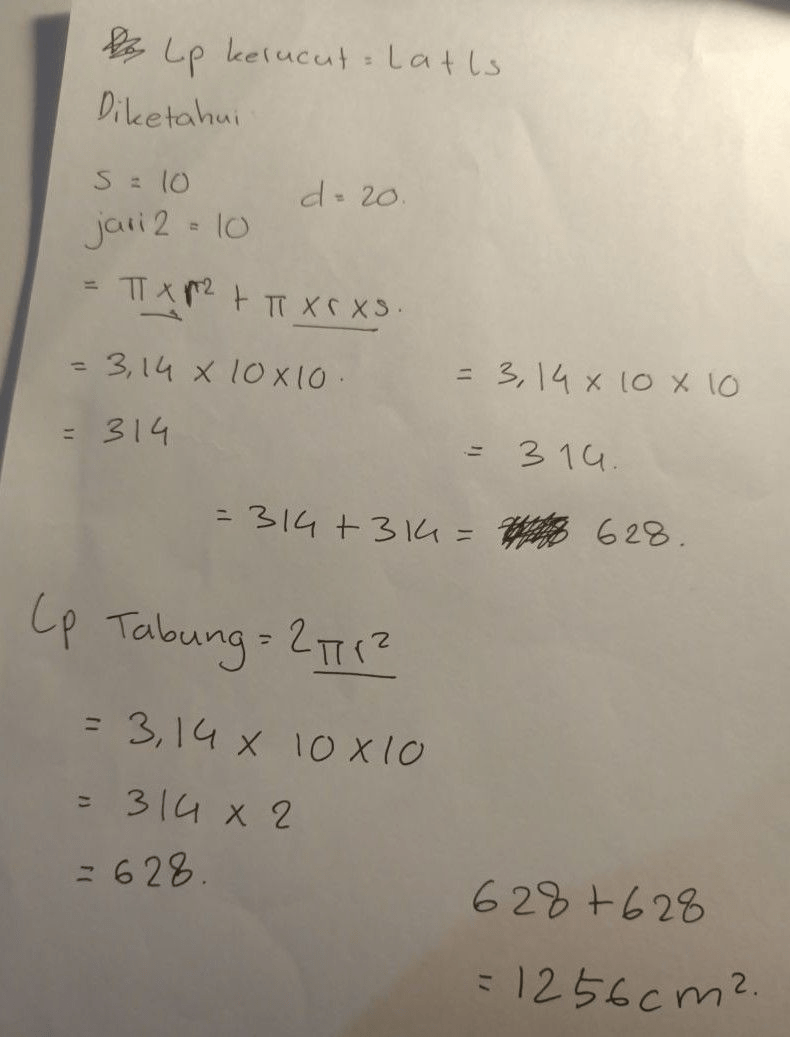 Lp kerucut = La + Ls
Diketahui
s = 10
d = 20.
jari2 = 10
= π x r² + π x r x s.
= 3,14 x 10 x 10.
= 3,14 x 10 x 10
= 314
= 314.
= 314 + 314 = 628.
Lp Tabung = 2πr²
= 3,14 x 10 x 10
= 314 x 2
= 628.
628 + 628
= 1256 cm².